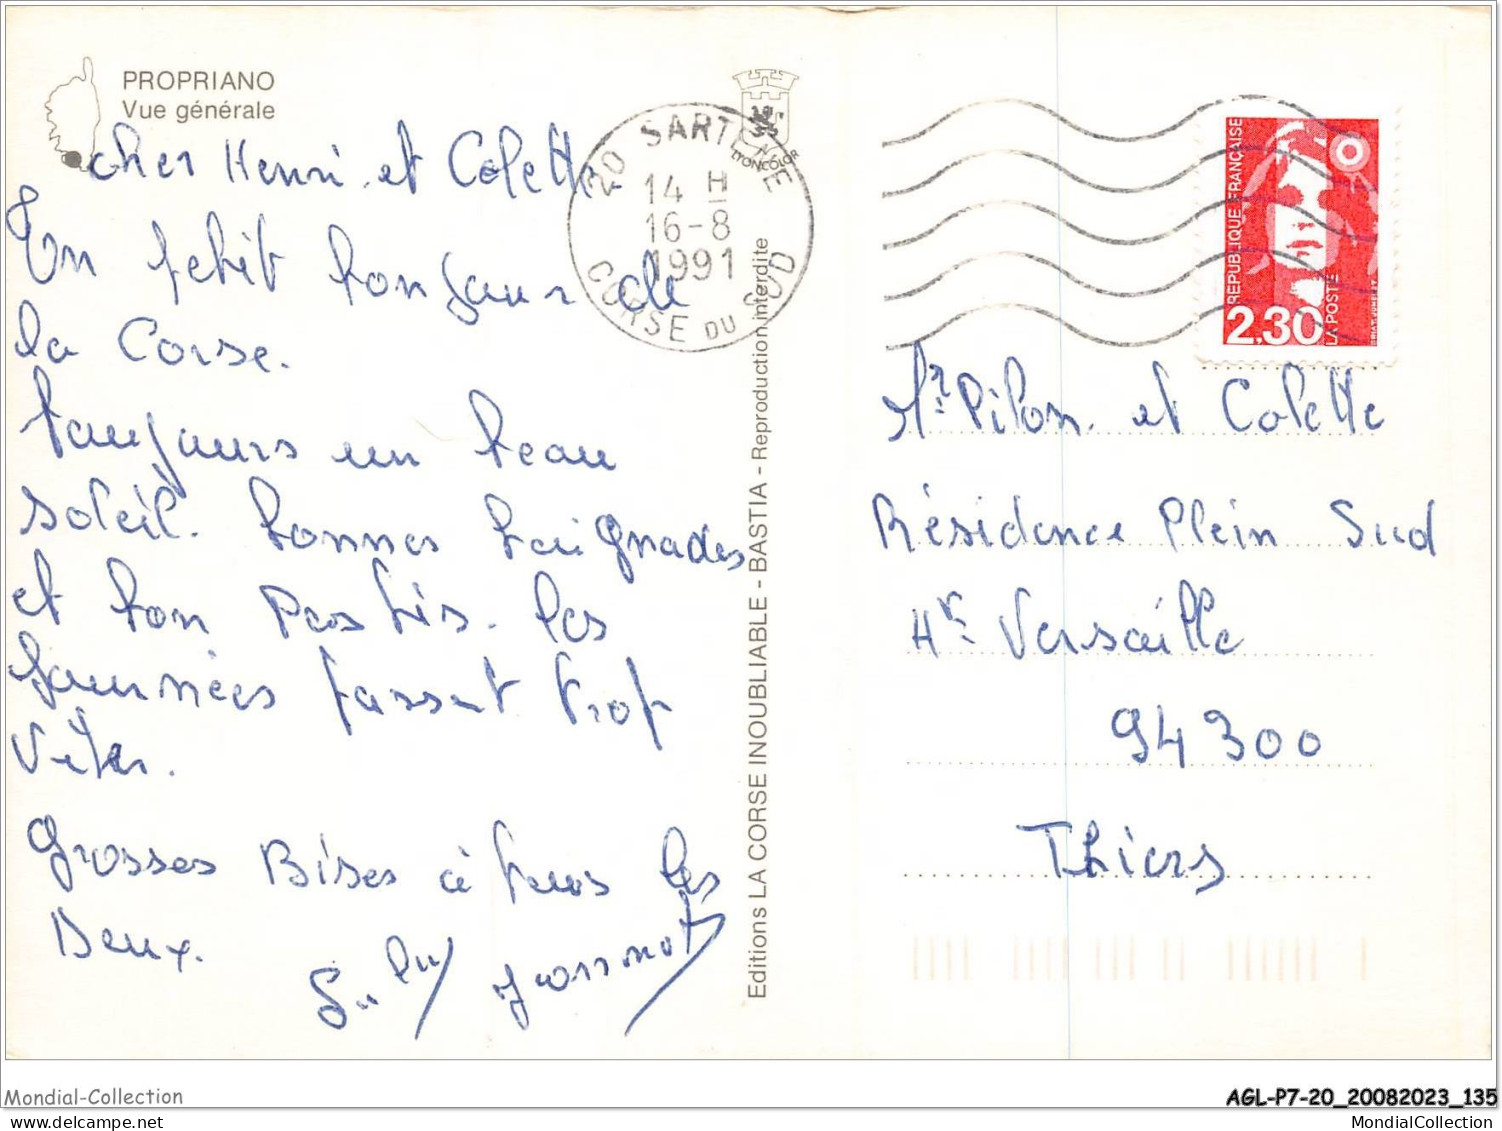 PROPRIANO
Vue générale
cher Henri et Colette
Un petit bonjour de
la Corse.
toujours un beau
soleil. bonnes baignades
et bon Pastis. les
journées passent trop
vites.
Grosses Bises à tous les
Deux.
20 SARTENE
14 H
16-8
1991
CORSE DU SUD
LYONCOLOR
Editions LA CORSE INOUBLIABLE - BASTIA - Reproduction interdite
REPUBLIQUE FRANÇAISE
LA POSTE
2,30
Mr Pilon et Colette
Résidence Plein Sud
Hr Versaille
94300
Thiers
Mondial-Collection
€2.30
AGL-P7-20_20082023_135
MondialCollection